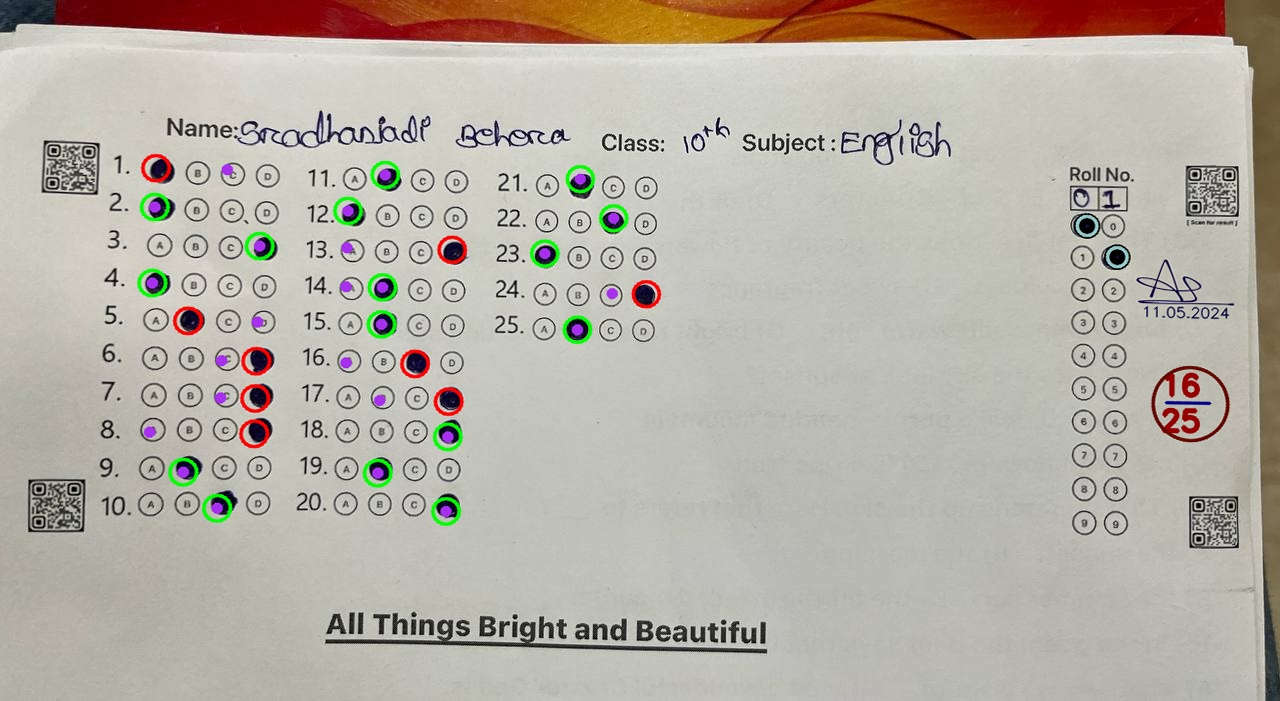 Name: Sradhanjadi Behera Class: 10th Subject: English
1. A B C D
2. A B C D
3. A B C D
4. A B C D
5. A B C D
6. A B C D
7. A B C D
8. A B C D
9. A B C D
10. A B C D
11. A B C D
12. A B C D
13. A B C D
14. A B C D
15. A B C D
16. A B C D
17. A B C D
18. A B C D
19. A B C D
20. A B C D
21. A B C D
22. A B C D
23. A B C D
24. A B C D
25. A B C D
Roll No.
0 1
0
1
2 2
3 3
4 4
5 5
6 6
7 7
8 8
9 9
[ Scan for result ]
11.05.2024
16
25
All Things Bright and Beautiful